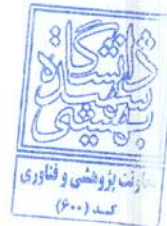 دانشگاه
شهید
بهشتی
معاونت پژوهشی و فناوری
کــد (۶۰۰)